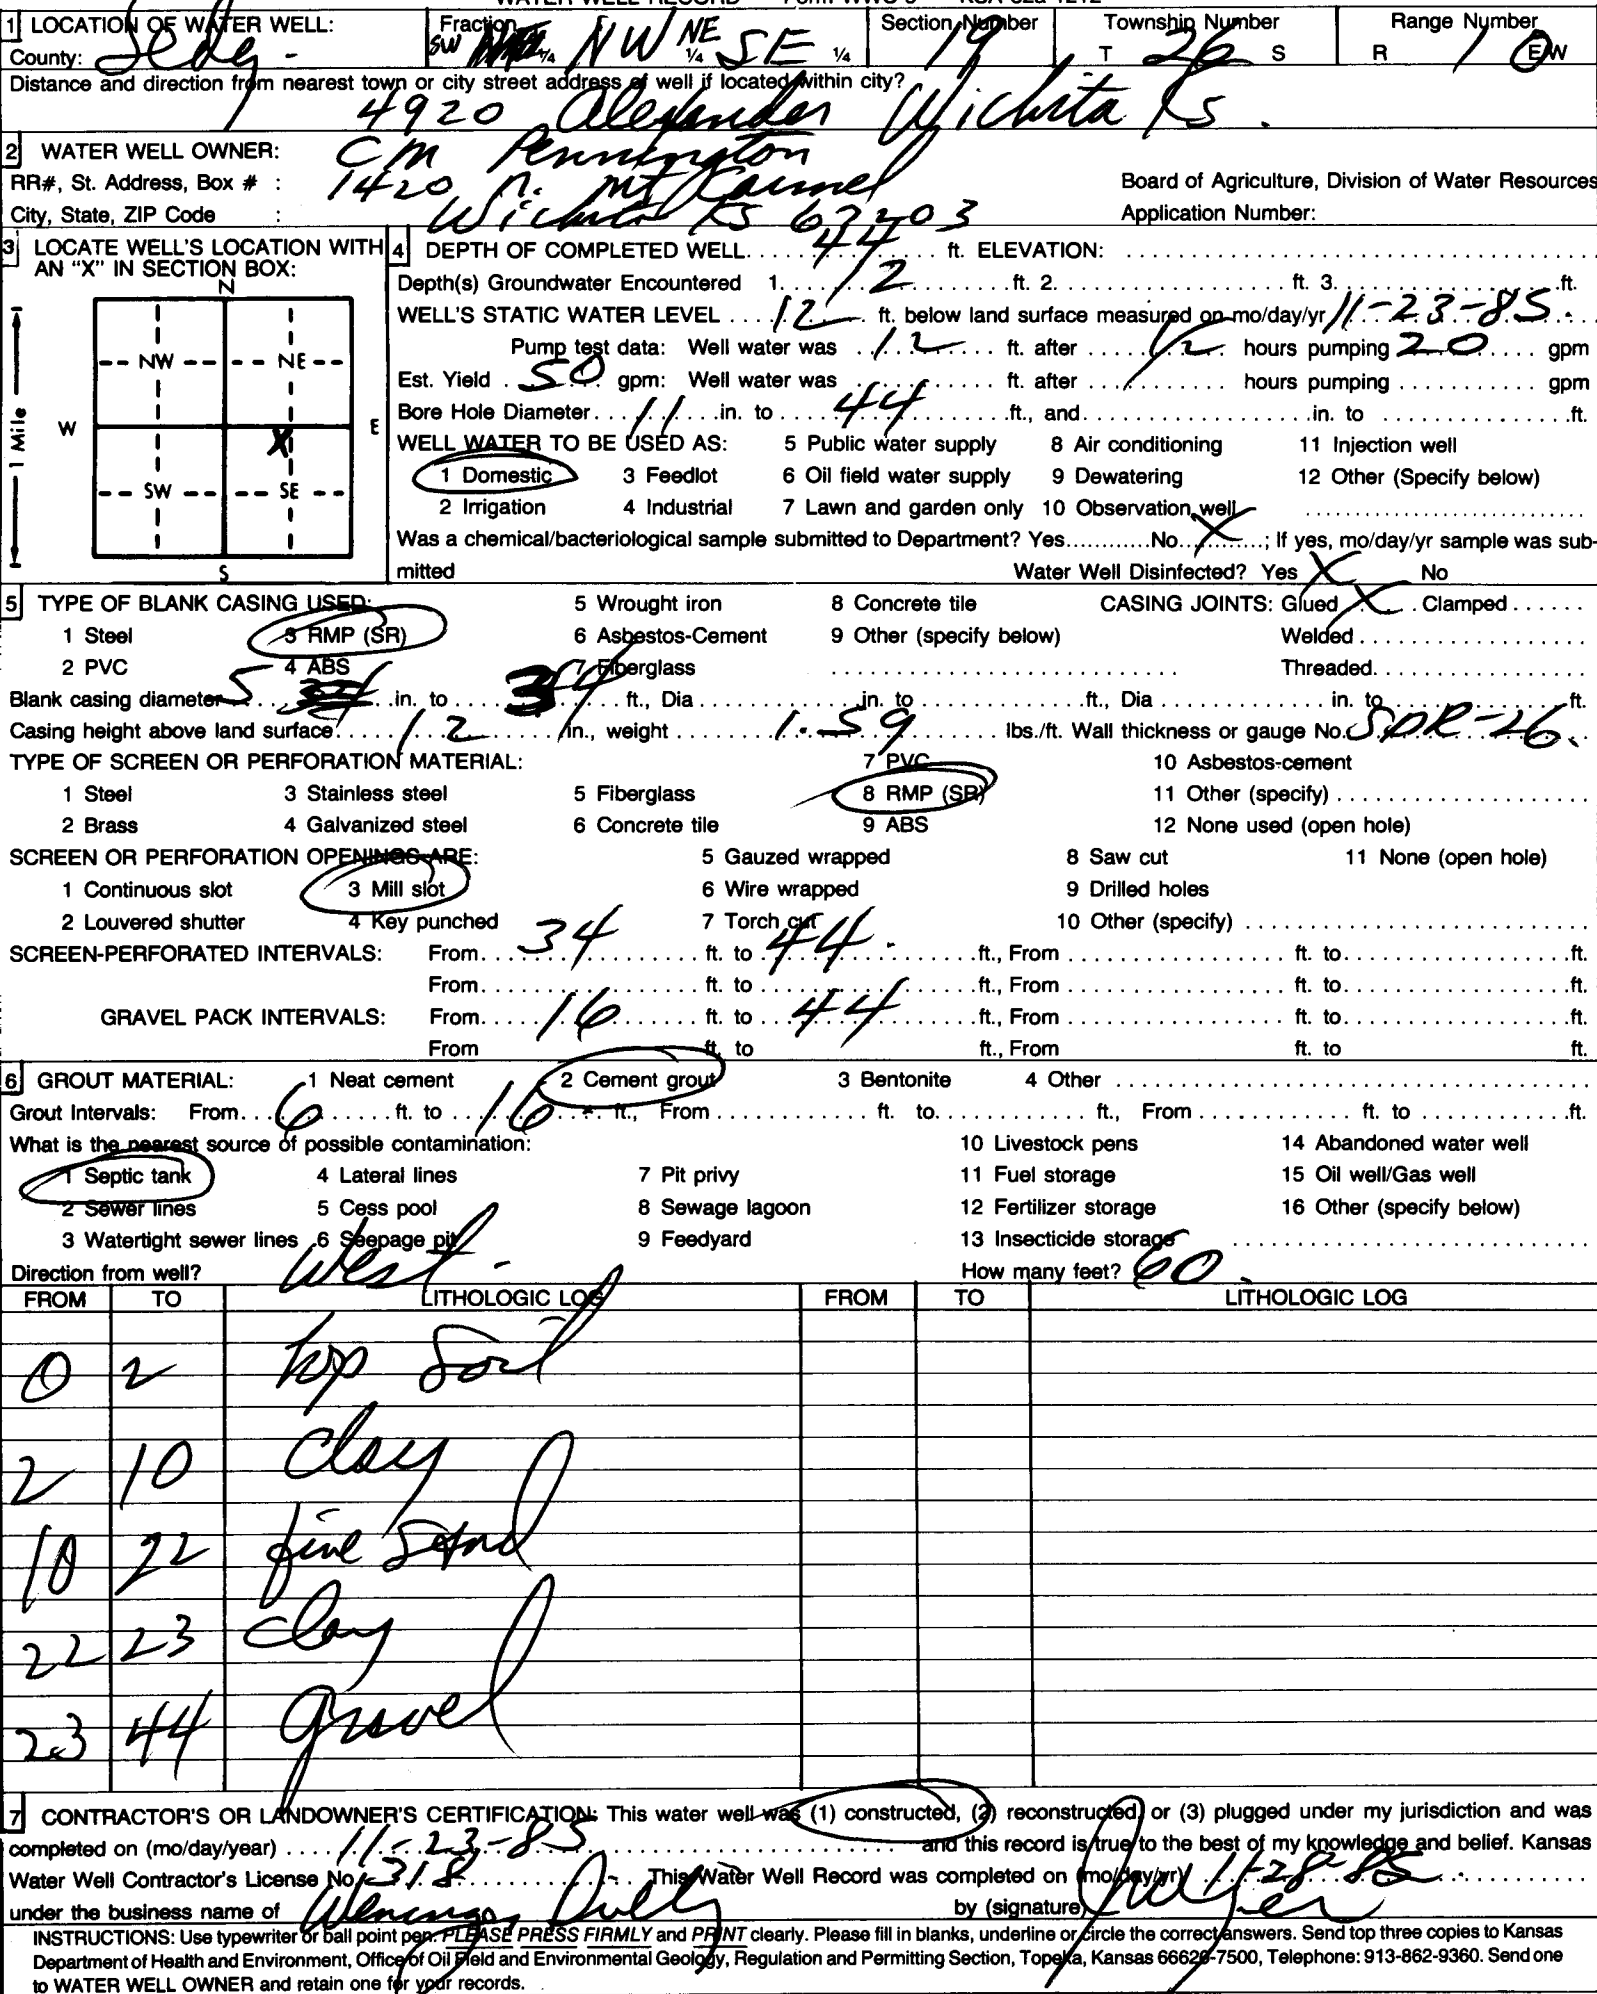 WATER WELL RECORD Form WWC-5 KSA 82a-1212
1 LOCATION OF WATER WELL: Fraction Section Number Township Number Range Number
County: Sedg. SW ¼ NW NE ¼ SE ¼ 19 T 26 S R 1 E/W
Distance and direction from nearest town or city street address of well if located within city?
4920 Alexander Wichita Ks.
2 WATER WELL OWNER: CM Pennington
RR#, St. Address, Box # : 1420 n. mt Carmel Board of Agriculture, Division of Water Resources
City, State, ZIP Code : Wichita Ks 67203 Application Number:
3 LOCATE WELL'S LOCATION WITH AN "X" IN SECTION BOX:
N
NW NE
W X E
1 Mile
SW SE
S
4 DEPTH OF COMPLETED WELL. 44 ft. ELEVATION:
Depth(s) Groundwater Encountered 1. 12 ft. 2. ft. 3. ft.
WELL'S STATIC WATER LEVEL 12 ft. below land surface measured on mo/day/yr 11-23-85.
Pump test data: Well water was 12 ft. after 1/2 hours pumping 20 gpm
Est. Yield 50 gpm: Well water was ft. after hours pumping gpm
Bore Hole Diameter 11 in. to 44 ft., and in. to ft.
WELL WATER TO BE USED AS: 5 Public water supply 8 Air conditioning 11 Injection well
1 Domestic 3 Feedlot 6 Oil field water supply 9 Dewatering 12 Other (Specify below)
2 Irrigation 4 Industrial 7 Lawn and garden only 10 Observation well
Was a chemical/bacteriological sample submitted to Department? Yes No X ; If yes, mo/day/yr sample was sub-
mitted Water Well Disinfected? Yes X No
5 TYPE OF BLANK CASING USED: 5 Wrought iron 8 Concrete tile CASING JOINTS: Glued X Clamped
1 Steel 3 RMP (SR) 6 Asbestos-Cement 9 Other (specify below) Welded
2 PVC 4 ABS 7 Fiberglass Threaded
Blank casing diameter 5 in. to 34 ft., Dia in. to ft., Dia in. to ft.
Casing height above land surface 12 in., weight 1.59 lbs./ft. Wall thickness or gauge No. SDR-26.
TYPE OF SCREEN OR PERFORATION MATERIAL: 7 PVC 10 Asbestos-cement
1 Steel 3 Stainless steel 5 Fiberglass 8 RMP (SR) 11 Other (specify)
2 Brass 4 Galvanized steel 6 Concrete tile 9 ABS 12 None used (open hole)
SCREEN OR PERFORATION OPENINGS ARE: 5 Gauzed wrapped 8 Saw cut 11 None (open hole)
1 Continuous slot 3 Mill slot 6 Wire wrapped 9 Drilled holes
2 Louvered shutter 4 Key punched 7 Torch cut 10 Other (specify)
SCREEN-PERFORATED INTERVALS: From 34 ft. to 44 ft., From ft. to ft.
From ft. to ft., From ft. to ft.
GRAVEL PACK INTERVALS: From 16 ft. to 44 ft., From ft. to ft.
From ft. to ft., From ft. to ft.
6 GROUT MATERIAL: 1 Neat cement 2 Cement grout 3 Bentonite 4 Other
Grout Intervals: From 6 ft. to 16 ft., From ft. to ft., From ft. to ft.
What is the nearest source of possible contamination: 10 Livestock pens 14 Abandoned water well
1 Septic tank 4 Lateral lines 7 Pit privy 11 Fuel storage 15 Oil well/Gas well
2 Sewer lines 5 Cess pool 8 Sewage lagoon 12 Fertilizer storage 16 Other (specify below)
3 Watertight sewer lines 6 Seepage pit 9 Feedyard 13 Insecticide storage
Direction from well? West. How many feet? 60.
FROM TO LITHOLOGIC LOG FROM TO LITHOLOGIC LOG
0 2 top soil
2 10 clay
10 22 fine sand
22 23 clay
23 44 gravel
7 CONTRACTOR'S OR LANDOWNER'S CERTIFICATION: This water well was (1) constructed, (2) reconstructed, or (3) plugged under my jurisdiction and was
completed on (mo/day/year) 11-23-85 and this record is true to the best of my knowledge and belief. Kansas
Water Well Contractor's License No. 318 This Water Well Record was completed on (mo/day/yr) 11-28-85
under the business name of by (signature)
INSTRUCTIONS: Use typewriter or ball point pen. PLEASE PRESS FIRMLY and PRINT clearly. Please fill in blanks, underline or circle the correct answers. Send top three copies to Kansas
Department of Health and Environment, Office of Oil Field and Environmental Geology, Regulation and Permitting Section, Topeka, Kansas 66620-7500, Telephone: 913-862-9360. Send one
to WATER WELL OWNER and retain one for your records.